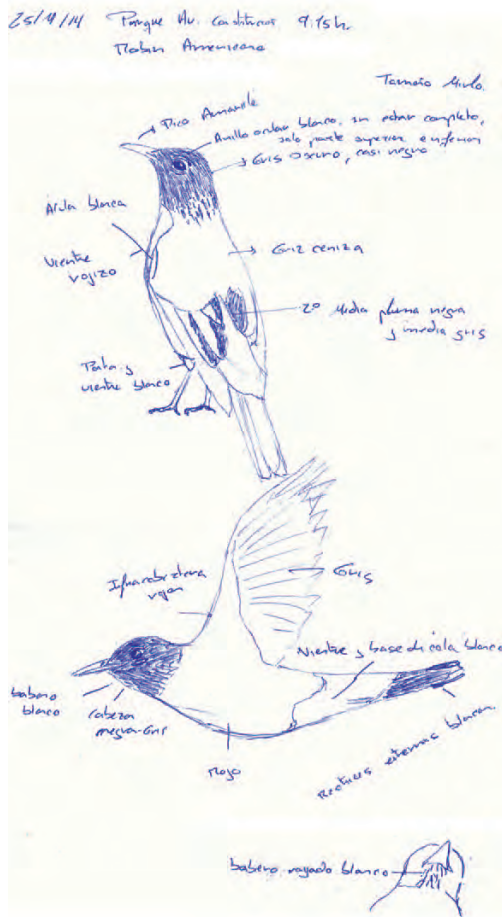 25/4/14 Parque Av. 9:15 h.
Robin Americano
Tamaño Mirlo.
Pico Amarillo
Anillo ocular blanco, sin estar completo,
solo parte superior e inferior
Gris oscuro, casi negro
blanca
Vientre
rojizo
Gris ceniza
2º Media pluma negra
y media gris
y
vientre blanco
Infracobertera
roja
Gris
Vientre y base de cola blanco
babero
blanco
Cabeza
negra-Gris
Rojo
Rectrices externas blancas.
babero rayado blanco